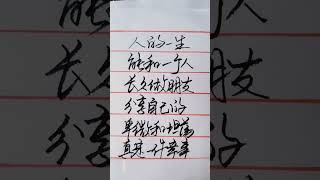 人的一生
能和一个人
长久做朋友
分享自己的
单纯和坦荡
真是一件幸事